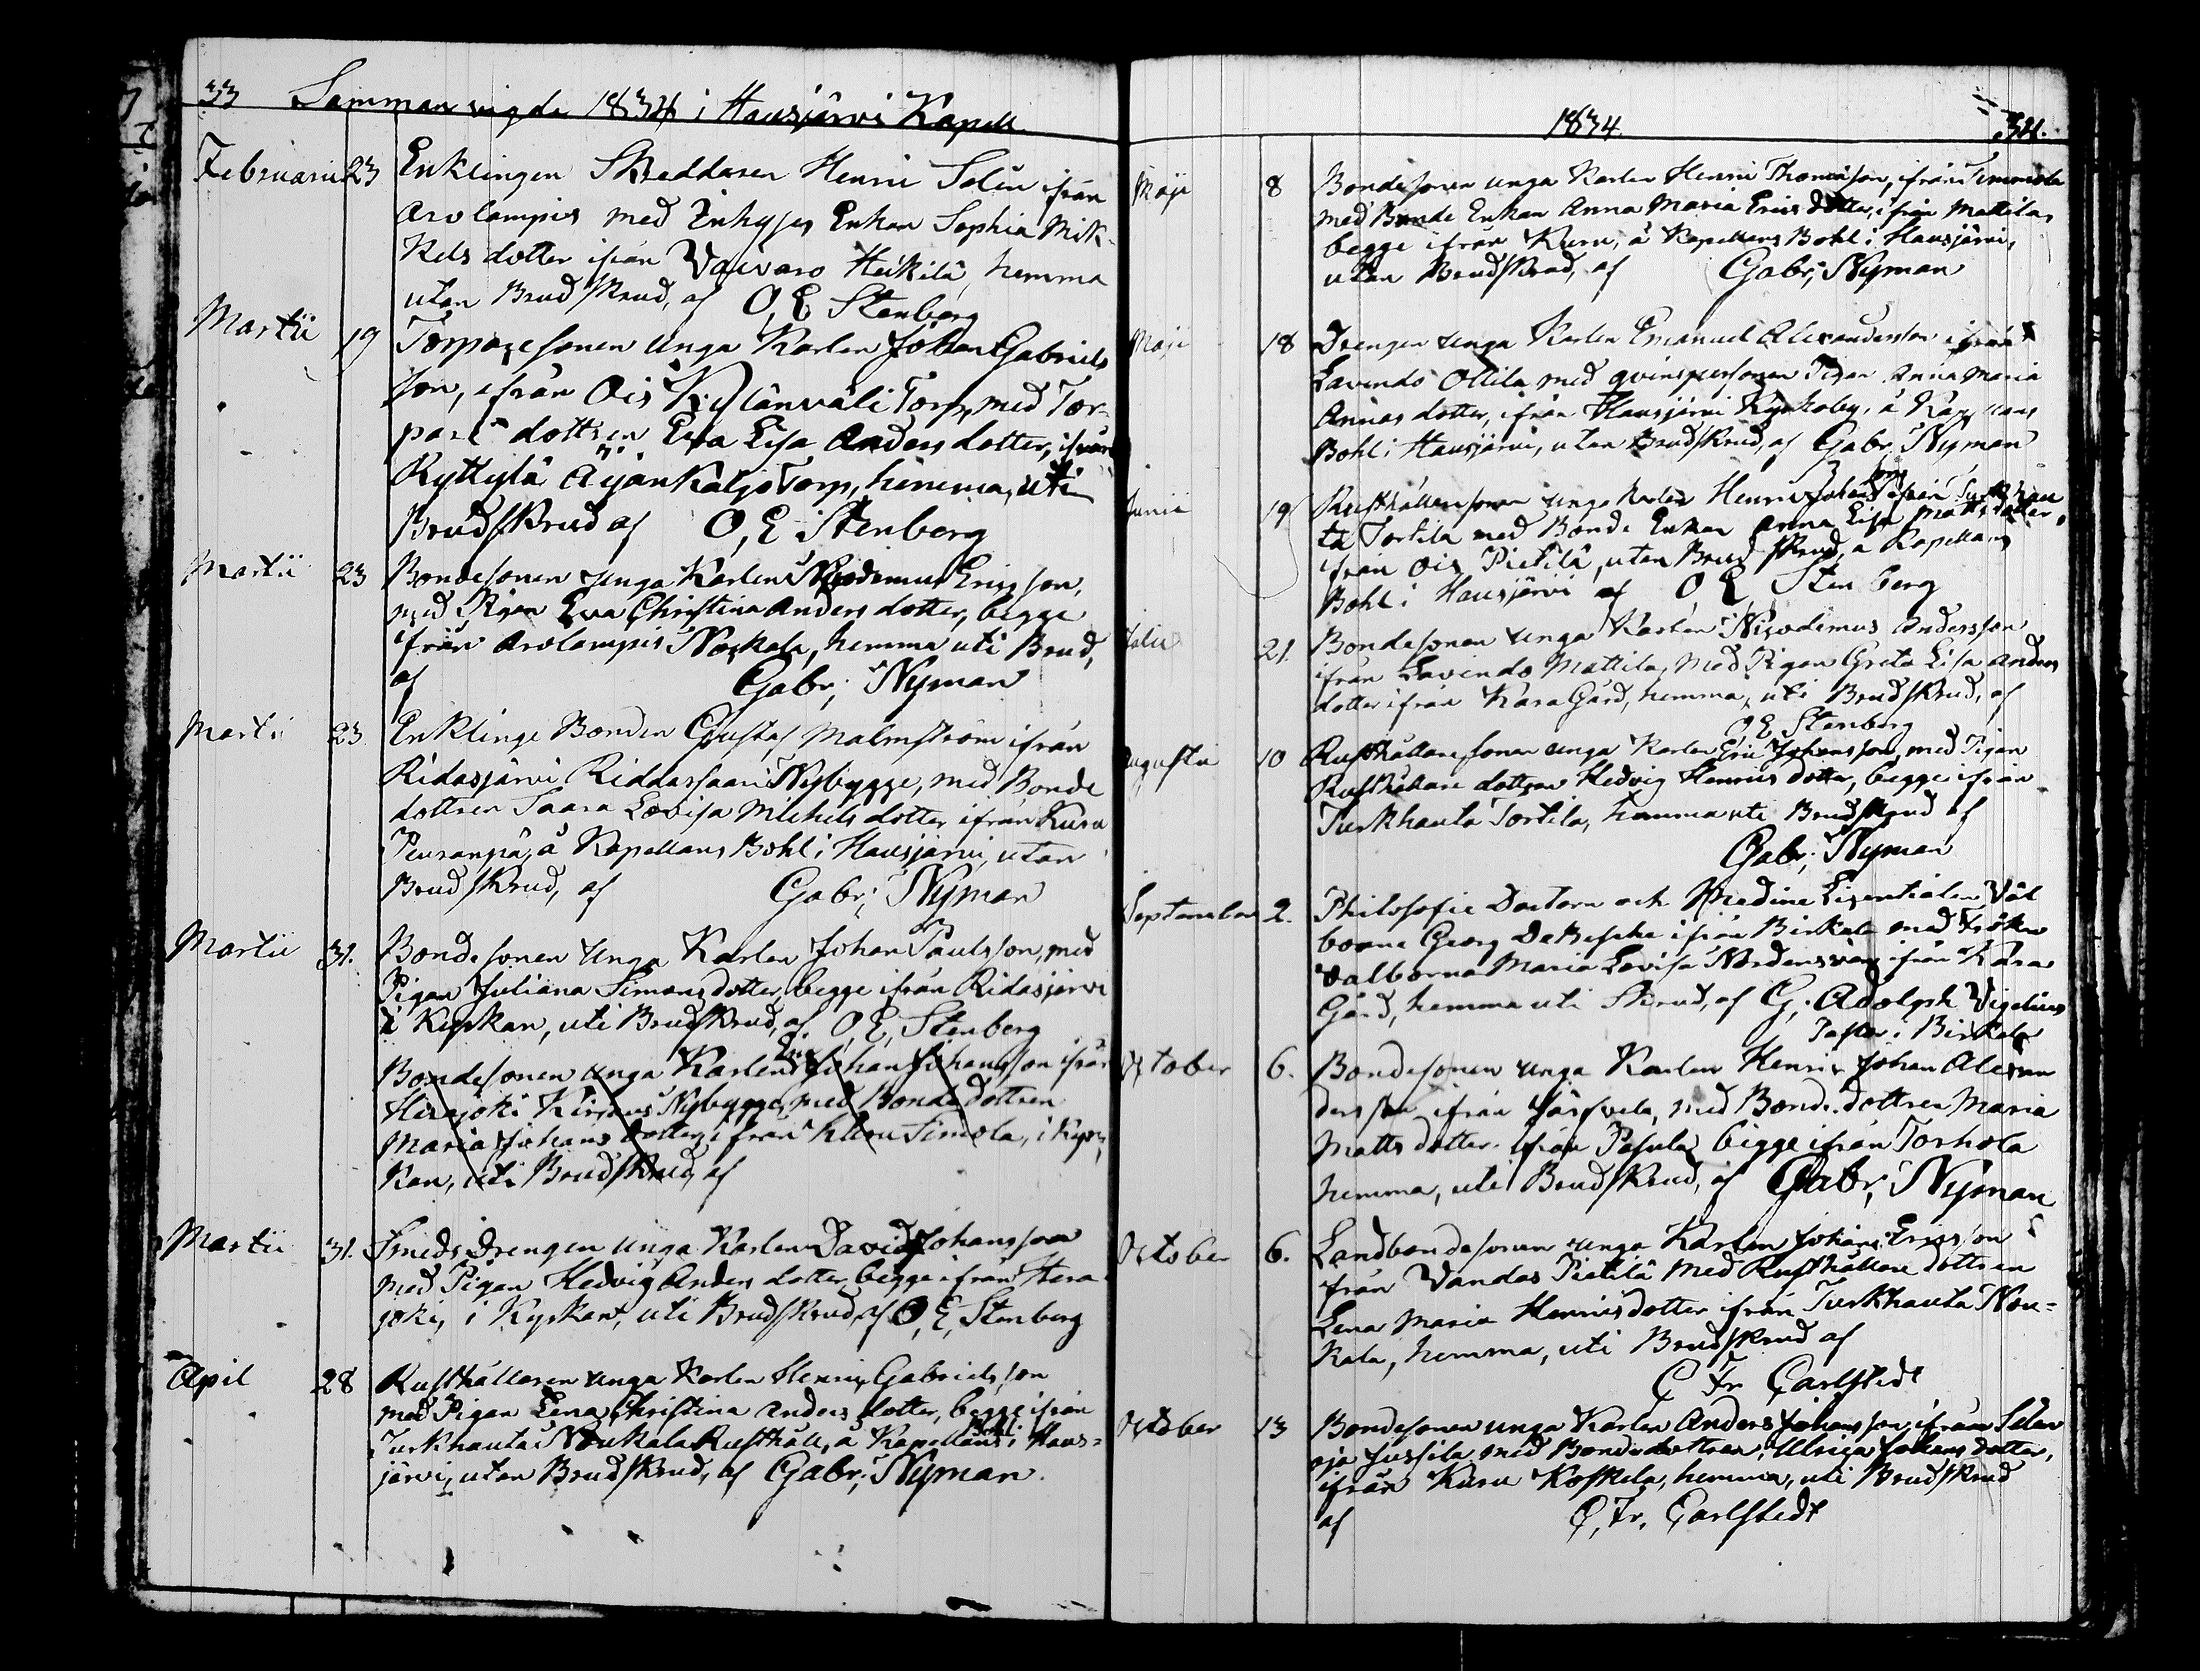 33 Sammanvigde 1834 i Hausjärvi Kapell
Februarii 23 Enklingen Skreddaren Henric Selin ifrån
Arolampis med Inhyses Enkan Sophia Mik-
kels dotter ifrån Vaivaro Heikilä, hemma
utan Brudskrud, af O, E Stenberg
Martii 19 Torparesonen unga Karlen Johan Gabriels
son, ifrån Ois Kylänväli Torp, med Tor-
pare dottren Eva Lisa Andersdotter, ifrån
Ryttylä Torp, hemma, uti
Brudskrud af O, E Stenberg
Martii 23 Bondesonen unga Karlen Nicodemus Ericsson,
med Pigan Eva Christina Anders dotter, begge
ifrån Arolampis Nokala, hemma uti Brud,
af Gabr; Nyman
Martii 23 Enklinge Bonden Gustaf Malmström ifrån
Ridasjärvi Riddassaari Nybygge, med Bonde
dottren Saara Lovisa Michels dotter ifrån Kuru
Peuranpä, å Kapellans Bohl i Hausjärvi, utan
Brudskrud, af Gabr; Nyman
Martii 31. Bondesonen Unga Karlen Johan Paulsson, med
Pigan Juliana Simonsdotter, begge ifrån Ridasjärvi
i Kyrkan, uti Brudskrud, af O, E, Stenberg
Bondesonen unga Karlen Johan Johansson ifrån
Herajoki Nybygge, med Bondedottren
Maria Johans dotter, ifrån Kuru Simola, i Kyr-
kan, uti Brudskrud, af
Martii 31. Smeds Drengen unga Karlen David Johansson
med Pigan Hedvig Anders dotter, begge ifrån Hera-
joki, i Kyrkan, uti Brudskrud, af O, E, Stenberg
April 28 Rusthållaren unga Karlen Henric Gabrielsson
med Pigan Lena Christina Anders dotter, begge ifrån
Turkhauta Noukala Rusthåll, å Kapellans Bohl i Haus-
järvi, utan Brudskrud, af Gabr; Nyman.
1834 34.
Maji 8 Bondesonen unga Karlen Henric Thomasson, ifrån Simola
med Bonde Enkan Anna Maria Erics dotter, ifrån Mattila,
begge ifrån Kuru, å Kapellans Bohl i Hausjärvi,
utan Brudskrud, af Gabr; Nyman
Maji 18 Drengen unga Karlen Emanuel Alexandersson ifrån
Lavindo Ottila med qvinspersonen Pigan Anna Maria
Annas dotter, ifrån Hausjärvi Kyrkoby, å Kapellans
Bohl i Hausjärvi, utan Brudskrud, af Gabr. Nyman
Junii 19 Rusthållarsonen unga Karlen Henric Johansson ifrån Turkhau
ta Tortila med Bonde Enkan Anna Lisa Matts dotter,
ifrån Ois Pietilä, utan Brudskrud, å Kapellans
Bohl i Hausjärvi af O E Stenberg
Julii 21. Bondesonen unga Karlen Nicodemus Andersson
ifrån Lavindo Mattila, med Pigan Greta Lisa Anders
dotter ifrån Kara Gård, hemma, uti Brudskrud, af
O E Stenberg
Augusti 10 Rusthållaresonen unga Karlen Eric Johansson, med Pigan
Rusthållare dottren Hedvig Henrics dotter, begge ifrån
Turkhauta Tortila, hemma uti Brudskrud af
Gabr; Nyman
September 2. Philosofie Doctorn och Medicine Licentiaten Väl
borne Georg DeBesche ifrån Birkala med Fröken
Välborna Maria Lovisa Nordensvan ifrån Kara
Gård, hemma uti Skrud, af G. Adolph Vigelius
Pastor i Birkala
October 6. Bondesonen unga Karlen Henric Johan Alexan
dersson ifrån Järfvelä, med Bondedottren Maria
Matts dotter ifrån Pasula begge ifrån Torhola
hemma, uti Brudskrud, af Gabr; Nyman
October 6. Landbondesonen unga Karlen Johan Ericsson
från Vandas Pietilä med Rusthållare dottren
Lena Maria Henricsdotter ifrån Turkhauta Nou-
kala, hemma, uti Brudskrud af
C Fr Carlstedt
October 13 Bondesonen unga Karlen Anders Johansson, ifrån Selän
oja Jussila, med Bondedottren Ulrica Johans dotter,
ifrån Kuru Koskela, hemma, uti Brudskrud
af C, Fr, Carlstedt